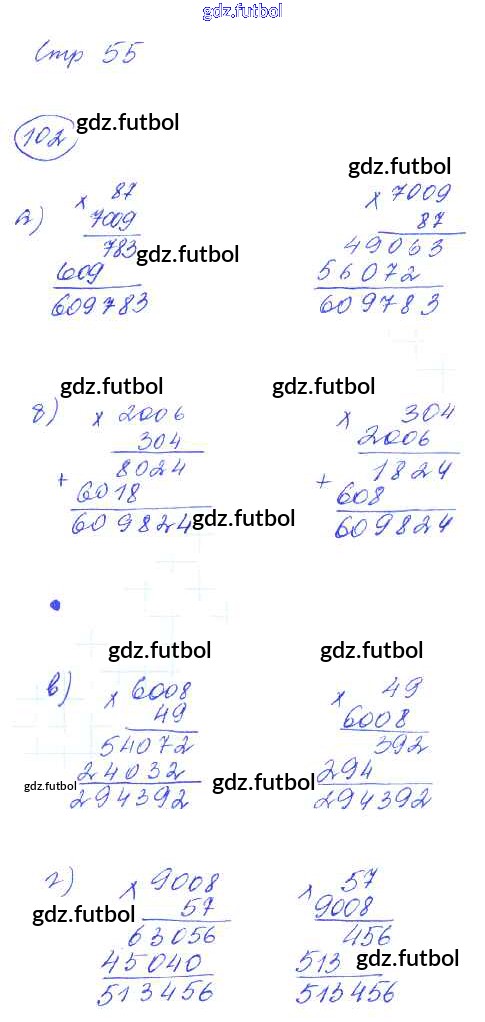 gdz.futbol
Стр 55
102 gdz.futbol
gdz.futbol
а) × 87 × 7009
7009 87
783 gdz.futbol 49063
609 56072
609783 609783
gdz.futbol gdz.futbol
б) × 2006 × 304
304 2006
+ 8024 + 1824
6018 608
609824 gdz.futbol 609824
gdz.futbol gdz.futbol
в) × 6008 × 49
49 6008
54072 392
gdz.futbol 24032 gdz.futbol 294
294392 294392
г) × 9008 × 57
gdz.futbol 57 9008
63056 456
45040 513 gdz.futbol
513456 513456